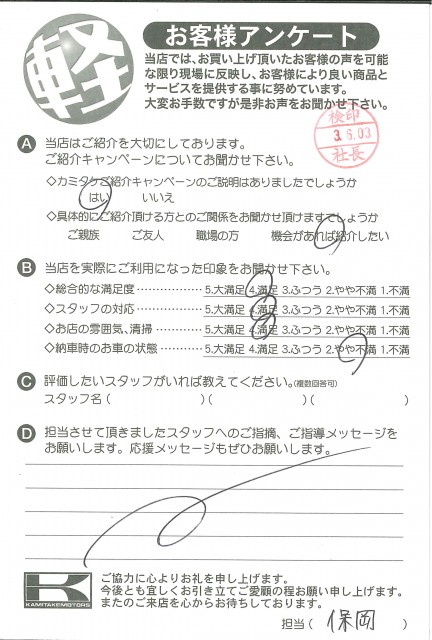 軽
お客様アンケート
当店では、お買い上げ頂いたお客様の声を可能
な限り現場に反映し、お客様により良い商品と
サービスを提供する事に努めています。
大変お手数ですが是非お声をお聞かせ下さい。
検印
3.6.03
社長
A 当店はご紹介を大切にしております。
ご紹介キャンペーンについてお聞かせ下さい。
◇カミタケご紹介キャンペーンのご説明はありましたでしょうか
はい いいえ
◇具体的にご紹介頂ける方とのご関係をお聞かせ頂けますでしょうか
ご親族 ご友人 職場の方 機会があれば紹介したい
B 当店を実際にご利用になった印象をお聞かせ下さい。
◇総合的な満足度 ……………… 5.大満足 4.満足 3.ふつう 2.やや不満 1.不満
◇スタッフの対応 ……………… 5.大満足 4.満足 3.ふつう 2.やや不満 1.不満
◇お店の雰囲気、清掃 ………… 5.大満足 4.満足 3.ふつう 2.やや不満 1.不満
◇納車時のお車の状態 ………… 5.大満足 4.満足 3.ふつう 2.やや不満 1.不満
C 評価したいスタッフがいれば教えてください。(複数回答可)
スタッフ名 ( )( )( )
D 担当させて頂きましたスタッフへのご指摘、ご指導メッセージを
お願いします。応援メッセージもぜひお願いします。
K
KAMITAKEMOTORS
ご協力に心よりお礼を申し上げます。
今後とも宜しくお引き立てご愛顧の程お願い申し上げます。
またのご来店を心からお待ちしております。
担当 ( 保岡 )